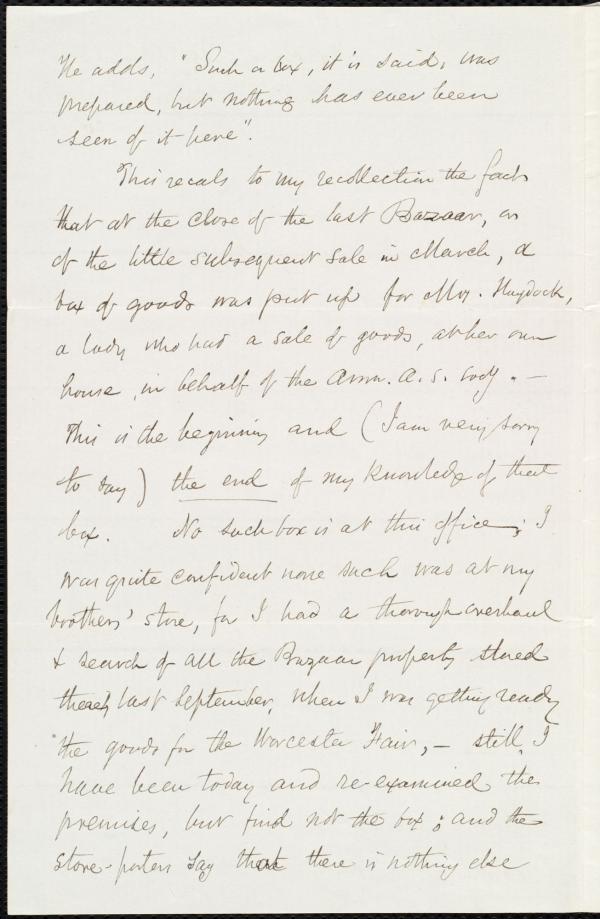 He adds, "Such a box, it is said, was
prepared, but nothing has ever been
seen of it here".
This recals to my recollection the fact
that at the close of the last Bazaar, or
of the little subsequent sale in March, a
box of goods was put up for Mrs. Haydock,
a lady who had a sale of goods, at her own
house, in behalf of the Amn. A. S. Socy. —
This is the beginning and (I am very sorry
to say) the end of my knowledge of that
box. No such box is at this office; I
was quite confident none such was at my
brothers' store, for I had a thorough overhaul
& search of all the Bazaar property stored
there, last September, when I was getting ready
the goods for the Worcester Fair, — still, I
have been today and re-examined the
premises, but find not the box; and the
store-porters say that there is nothing else